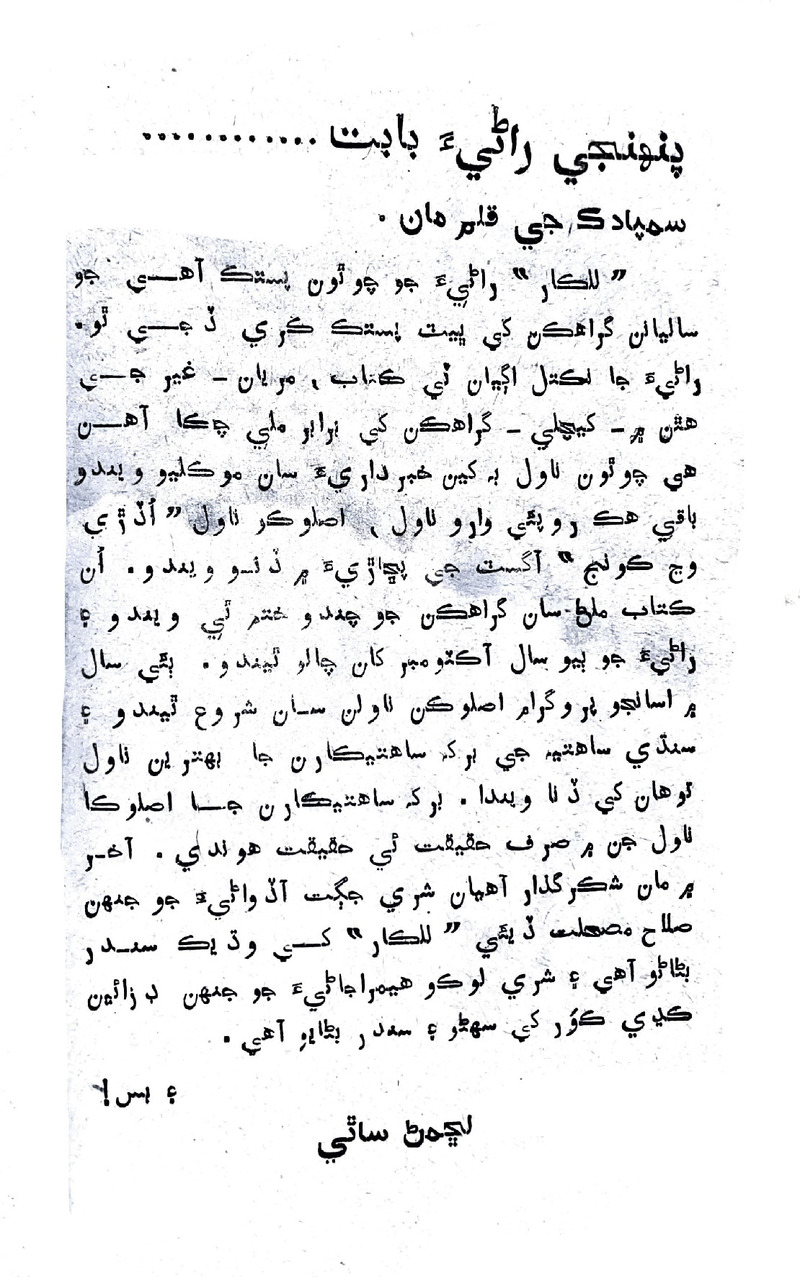 پنهنجي راڻيءَ بابت ............
سمپادڪ جي قلم مان .
” للڪار “ راڻيءَ جو چوٿون پستڪ آهـــي جو
ساليانن گراهڪن کي ڀيٽ پستڪ ڪري ڏجـــي ٿو.
راڻيءَ جا نڪتل اڳيان ٽي ڪتاب ، مريان ــ غير جـــي
هٿن ۾ ــ ڪيچلي ــ گراهڪن کي برابر ملي چڪا آهـــن
هي چوٿون ناول به کين خبرداريءَ سان موڪليو ويندو
باقي هڪ روپئي وارو ناول ، اصلوڪو ناول ” اُڏڙي
وڃ ڪونج “ آگسٽ جي پڇاڙيءَ ۾ ڏنـو ويندو. اُن
ڪتاب ملڻ سان گراهڪن جو چندو ختم ٿي ويندو ۽
راڻيءَ جو ٻيو سال آڪٽومبر کان چالو ٿيندو. ٻئي سال
۾ اسانجو پروگرام اصلوڪن ناولن سـان شروع ٿيندو ۽
سنڌي ساهتيه جي برک ساهتيڪارن جا بهترين ناول
توهان کي ڏنا ويندا . برک ساهتيڪارن جـــا اصلوڪا
ناول جن ۾ صرف حقيقت ئي حقيقت هوندي . آخـر
۾ مان شڪرگذار آهيان شري جڳت آڏواڻيءَ جو جنهن
صلاح مصلحت ڏيئي ” للڪار “ کـــي وڌيڪ سنـدر
بڻائڻو آهي ۽ شري لوڪو هيمراجاڻيءَ جو جنهن ڊزائين
ڪڍي ڪوَر کي سهڻو ۽ سندر بڻايو آهي .
۽ بس!
لڇمڻ ساٿي